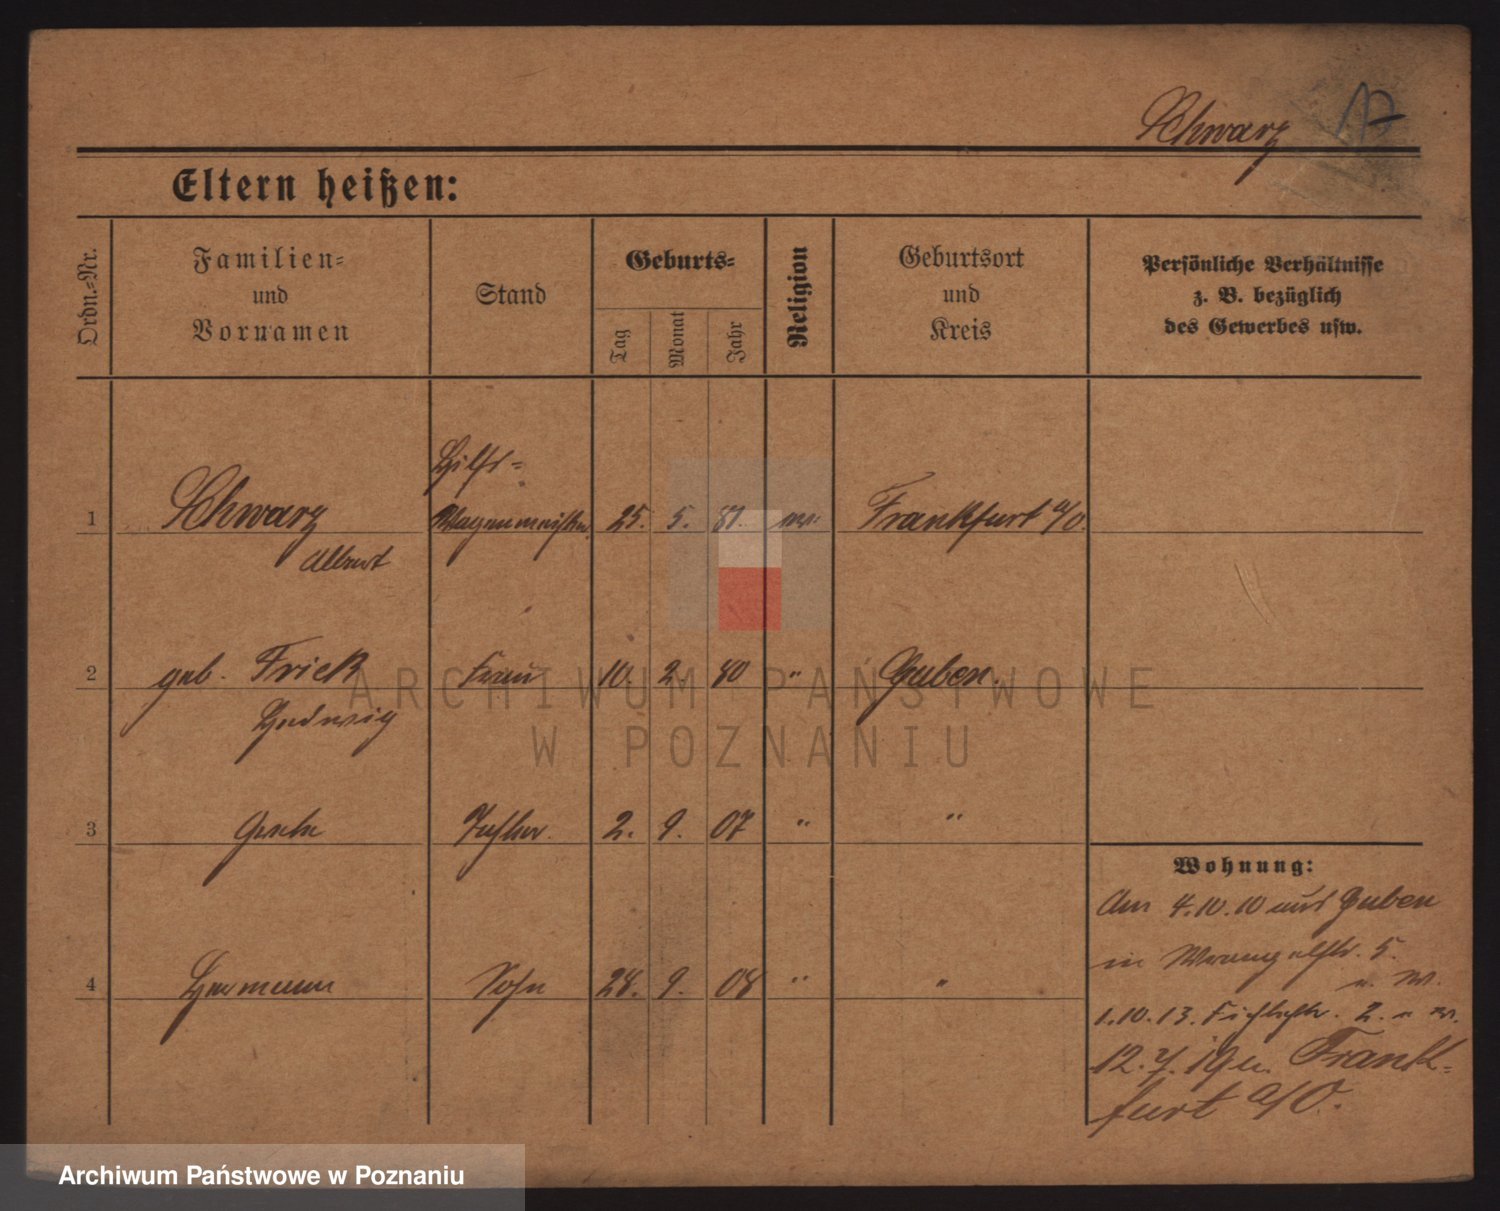 Schwarz 17
Eltern heißen:
Ordn.-Nr.
Familien-
und
Vornamen
Stand
Geburts-
Tag
Monat
Jahr
Religion
Geburtsort
und
Kreis
Persönliche Verhältnisse
z. B. bezüglich
des Gewerbes usw.
Hilfs-
1 Schwarz Wagenmeister 25. 5. 81. ev. Frankfurt a/O
Albert
2 geb. Frick Frau 10. 2. 80 " Guben.
Hedwig
3 Grete Tochter. 2. 9. 07 " "
4 Hermann Sohn 28. 9. 08 " "
Wohnung:
Am 4.10.10 aus Guben
in Wrangelstr. 5.
1.10.13. Fichtestr. 2.
12.7.19 n. Frank-
furt a/O.
ARCHIWUM PAŃSTWOWE
W POZNANIU
Archiwum Państwowe w Poznaniu